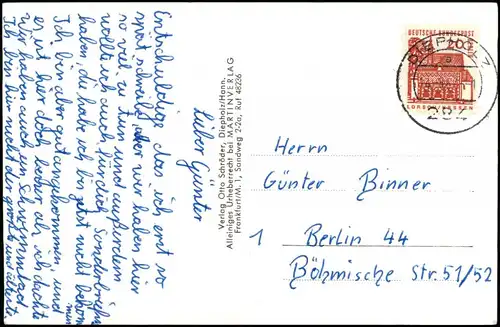 Lieber Günter
Entschuldige das ich erst so
spät schreibe, aber wir haben hier
so viel zu tun und außerdem
wollte ich auch für dich Sonderbriefm.
haben, die habe ich bis jetzt nicht bekom
Ich bin aber gut angekommen, und
es ist hier doch besser als ich dachte
Wir haben auch ein Schwimmbad
Ich bin hier nicht der größte und älteste
Verlag Otto Schröder, Diepholz/Hann.
Alleiniges Urheberrecht bei MARTINVERLAG
Frankfurt/M. 1, Sandweg 2-2a, Ruf 48226
DEUTSCHE BUNDESPOST
20
LORSCH/HESSEN
DIEPHOLZ
Herrn
Günter Binner
1 Berlin 44
Böhmische Str. 51/52